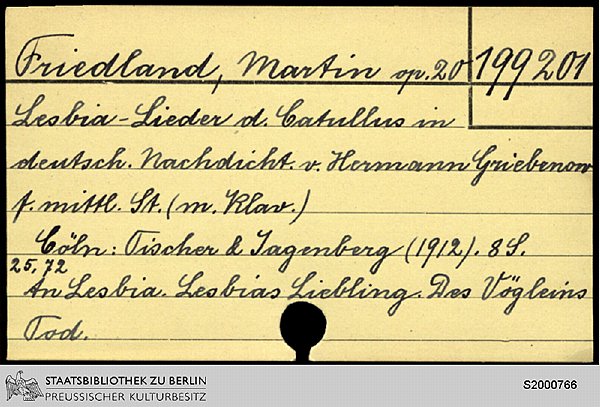 Friedland, Martin op. 20 199201
Lesbia-Lieder d. Catullus in
deutsch. Nachdicht. v. Hermann Griebenow
f. mittl. St. (m. Klav.)
Cöln: Tischer & Jagenberg (1912). 8 S.
25,72
An Lesbia. Lesbias Liebling. Des Vögleins
Tod.
STAATSBIBLIOTHEK ZU BERLIN
PREUSSISCHER KULTURBESITZ
S2000766